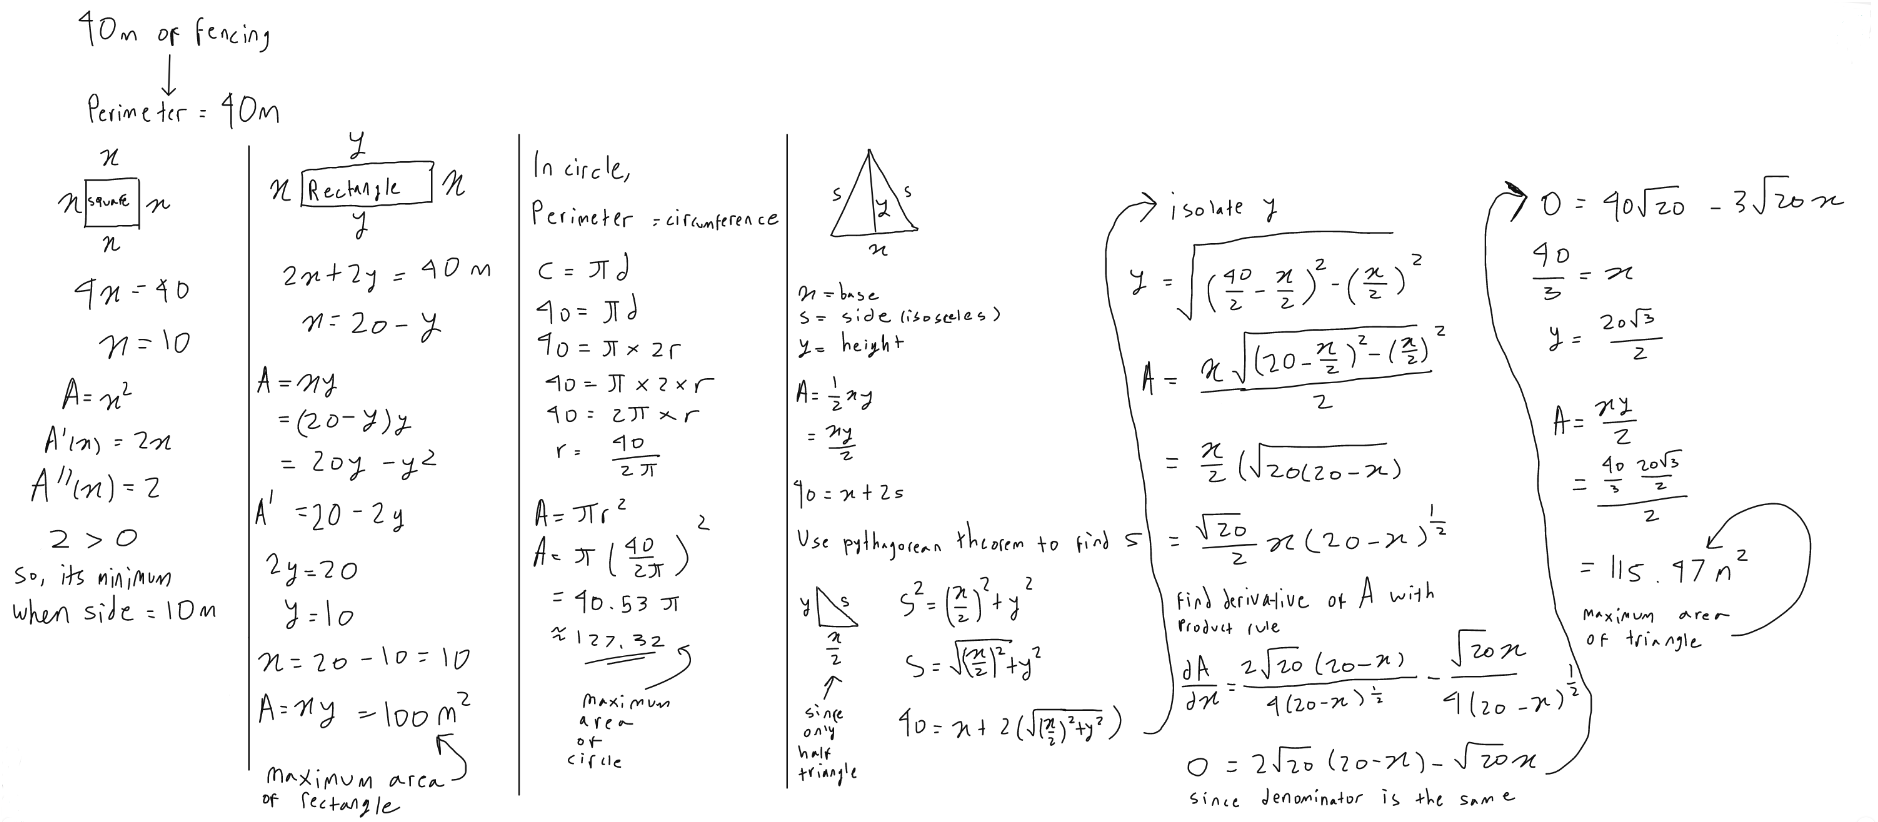 40m of fencing
Perimeter = 40m
x
x square x
x
4x = 40
x = 10
A = x²
A'(x) = 2x
A''(x) = 2
2 > 0
so, its minimum
when side = 10m
y
x Rectangle x
y
2x + 2y = 40 m
x = 20 - y
A = xy
= (20 - y)y
= 20y - y²
A' = 20 - 2y
2y = 20
y = 10
x = 20 - 10 = 10
A = xy = 100 m²
maximum area
of rectangle
In circle,
Perimeter = circumference
C = πd
40 = πd
40 = π × 2r
40 = π × 2 × r
40 = 2π × r
r = 40/2π
A = πr²
A = π (40/2π)²
= 40.53 π
≈ 127.32
maximum
area
of
circle
s y s
x
x = base
s = side (isosceles)
y = height
A = ½xy
= xy/2
40 = x + 2s
Use pythagorean theorem to find s
y s
x/2
since
only
half
triangle
s² = (x/2)² + y²
s = √((x/2)² + y²)
40 = x + 2(√((x/2)² + y²))
isolate y
y = √((40/2 - x/2)² - (x/2)²)
A = x√((20 - x/2)² - (x/2)²)/2
= x/2 (√20(20 - x))
= √20/2 x(20 - x)^½
find derivative of A with
product rule
dA/dx = 2√20 (20 - x)/4(20 - x)^½ - √20x/4(20 - x)^½
0 = 2√20 (20 - x) - √20x
since denominator is the same
0 = 40√20 - 3√20x
40/3 = x
y = 20√3/2
A = xy/2
= (40/3 20√3/2)/2
= 115.47 m²
maximum area
of triangle